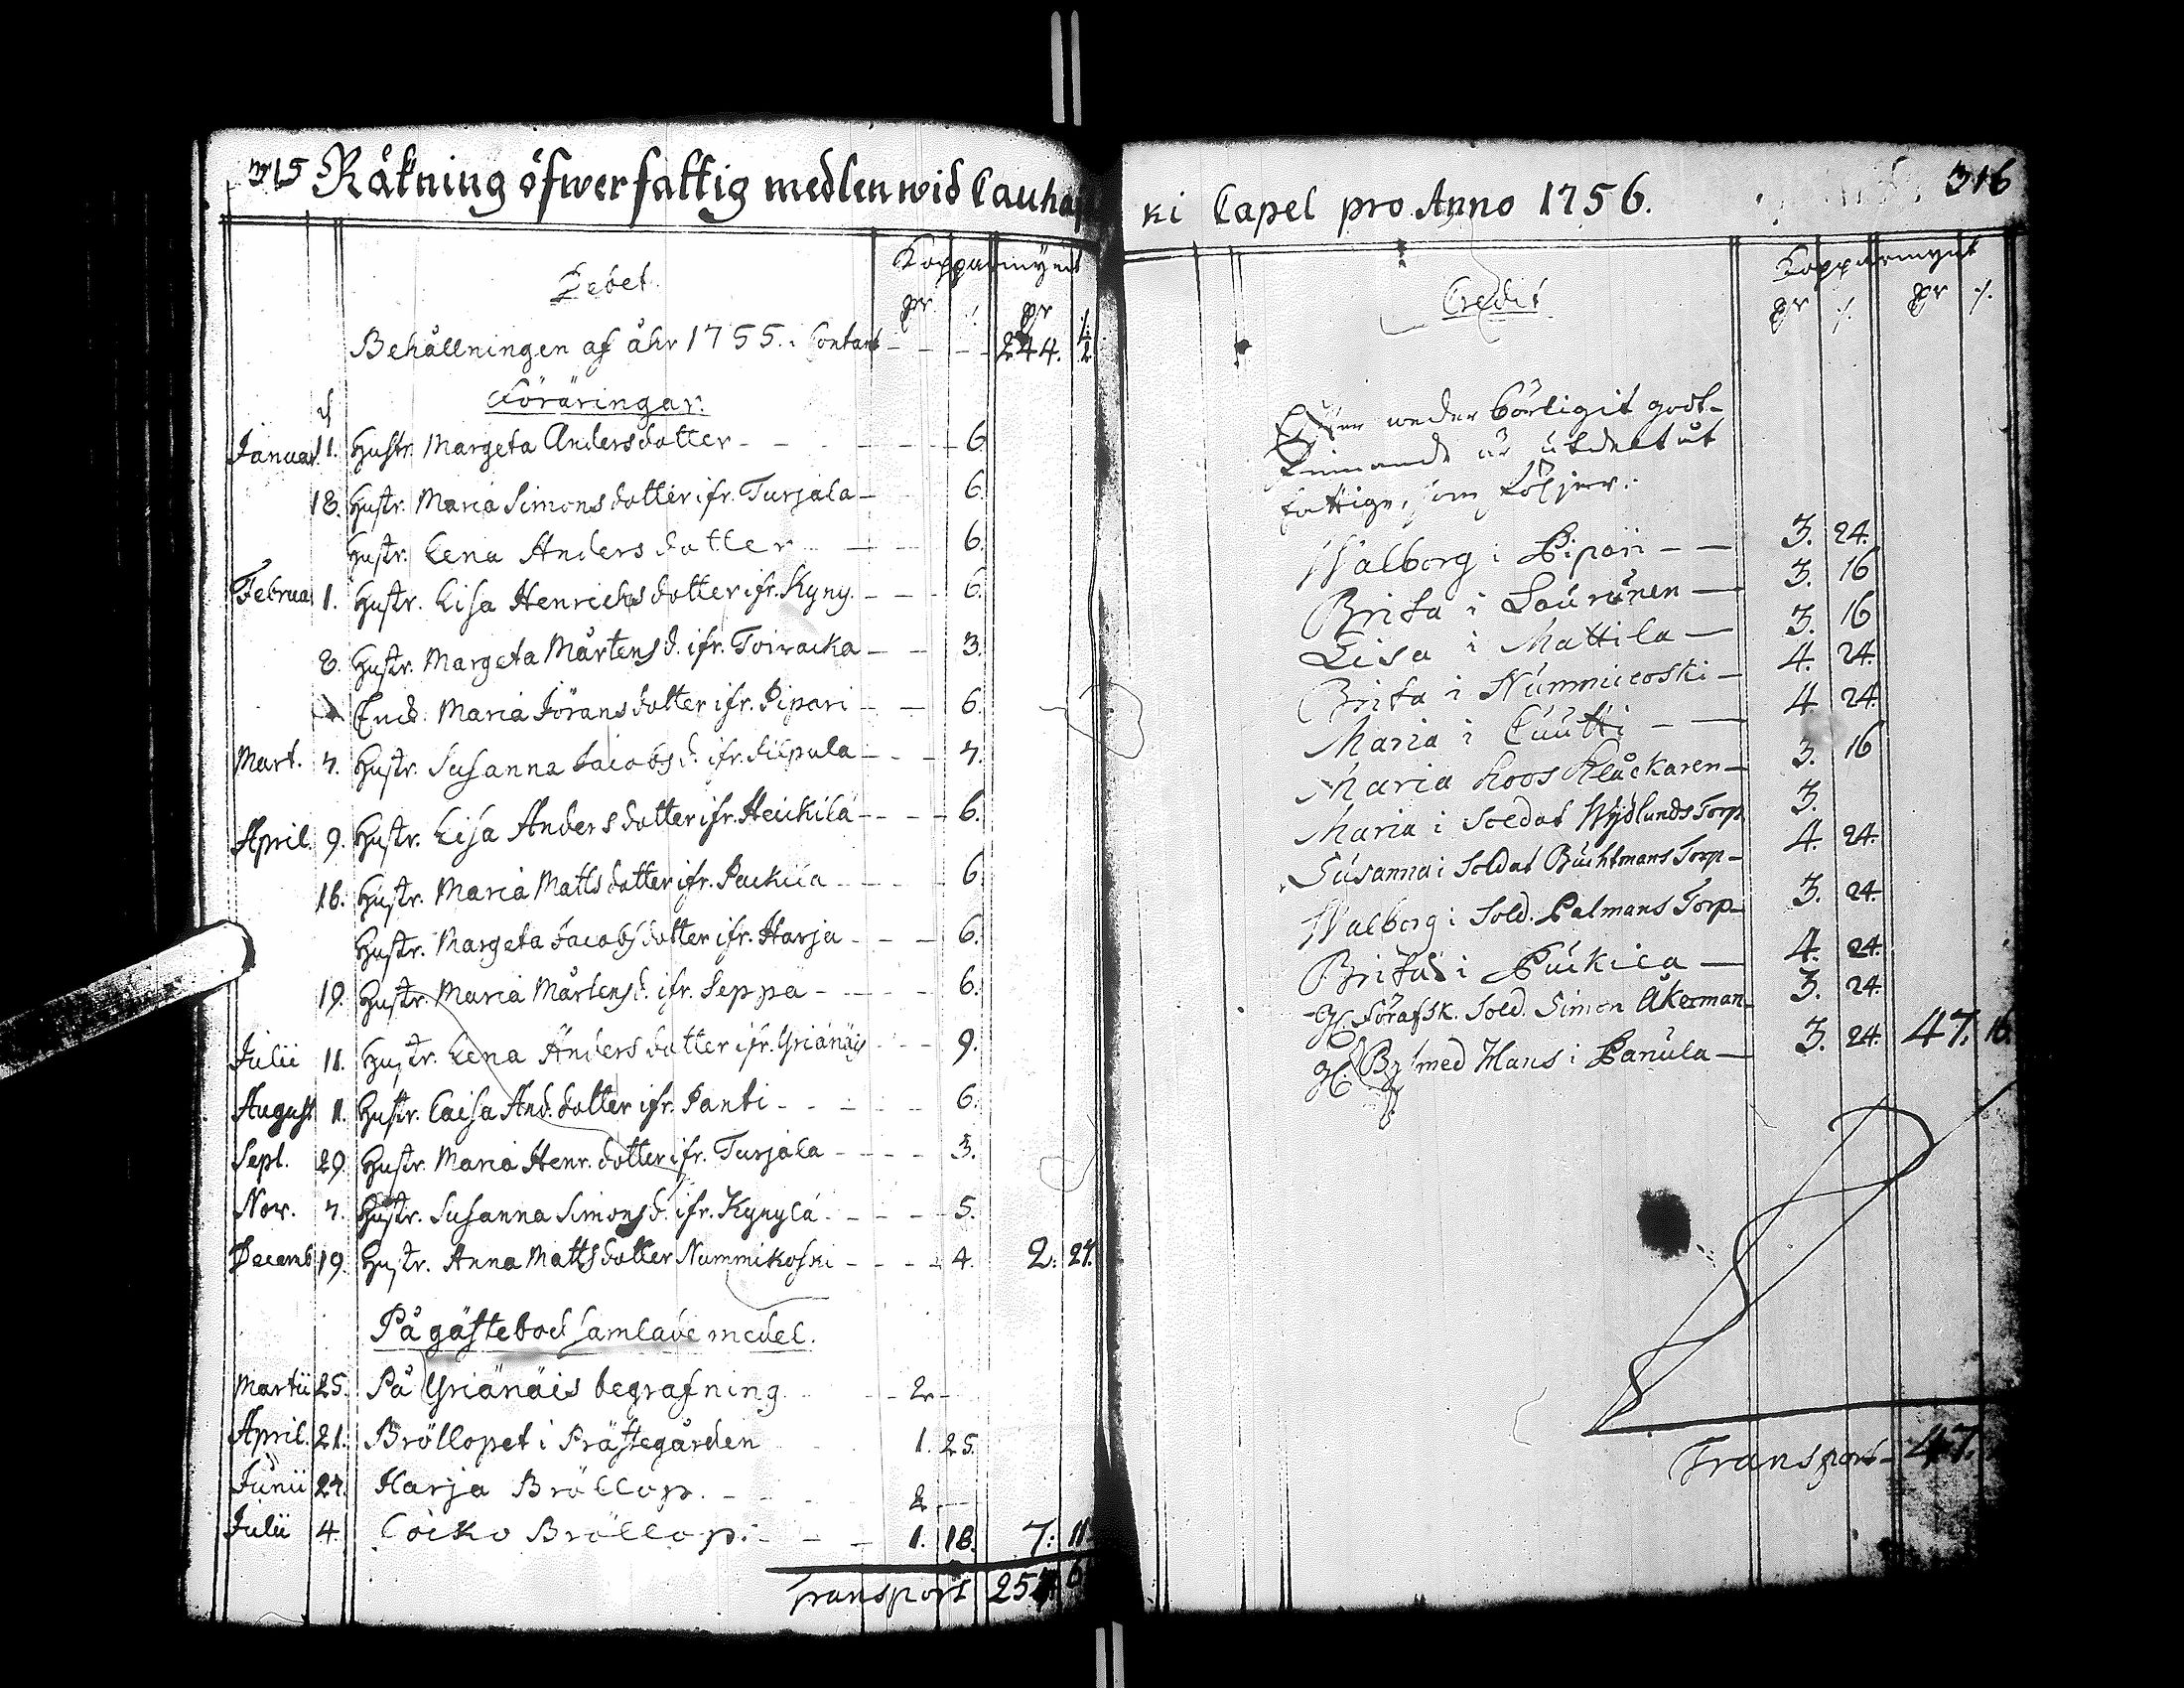 315 Räkning öfwer fattig medlen wid Cauha
Debet.
Kopparmynt
pr ./. pr ./.
Behållningen af åhr 1755. i Contant - - - 244. 1/2
Föräringar.
Januar. 11. Hustr. Margeta Andersdotter - - - - 6
18. Hustr. Maria Simonsdotter ifr. Turjala - 6.
Hustr. Lena Andersdotter - - 6.
Februa 1. Hustr. Lisa Henrichsdotter ifr. Kyny. - - - 6.
8. Hustr. Margeta Mårtensd. ifr. Toiwacka - - 3.
Maria Jöransdotter ifr. Pipari - - 6.
Mart. 7. Hustr. Susanna Jacobsd. ifr. Filpula - - - 7.
April. 9. Hustr. Lisa Andersdotter ifr. Heickilä - - - 6.
16. Hustr. Maria Mattsdotter ifr. - - - 6
Hustr. Margeta Jacobsdotter ifr. Harja - - - 6.
19. Hustr. Maria Mårtensd. ifr. Seppä - - - 6.
Julii 11. Hustr. Lena Andersdotter ifr. Griänäis - - 9.
August 11. Hustr. Caisa And.dotter ifr. Panti - - - - 6.
Sept. 29. Hustr. Maria Henr.dotter ifr. Turjala - - - - 3.
Nov. 7. Hustr. Susanna Simonsd. ifr. Kynylä. - - - 5.
Decemb 19. Hustr. Anna Mattsdotter Nummikoski - - - - 4. 2. 27.
På gästebod samlade medel.
Martii 25. På Griänäis begrafning - 2 -
April. 21. Bröllopet i Prästegården 1. 25.
Junii 27. Harja Bröllop. - - 2 -
Julii 4. Bröllop. - - 1. 18. 7: 11
Transport
ki Capel pro Anno 1756. 316
Credit
Kopparmynt
pr ./. pr ./.
godt-
är utdelt åt
fattige, som följer.
Walborg i Pipari - - 3. 24.
Brita i Laurunen - 3. 16
Lisa i Mattila - 3. 16
Brita i Nummicoski - 4. 24.
Maria i Cuutti - - 4 24.
Maria hoos Klåckaren - 3. 16
Maria i Soldat Wydlunds Torp 3.
Susanna i Soldat Buchtmans Torp - 4. 24.
Walborg i Sold. Palmans Torp - 3. 24.
Brita i - 4. 24.
Sold. Simon Åkerman - 3. 24.
med Hans i Panula - 3. 24. 47. 16.
Transport - 47.